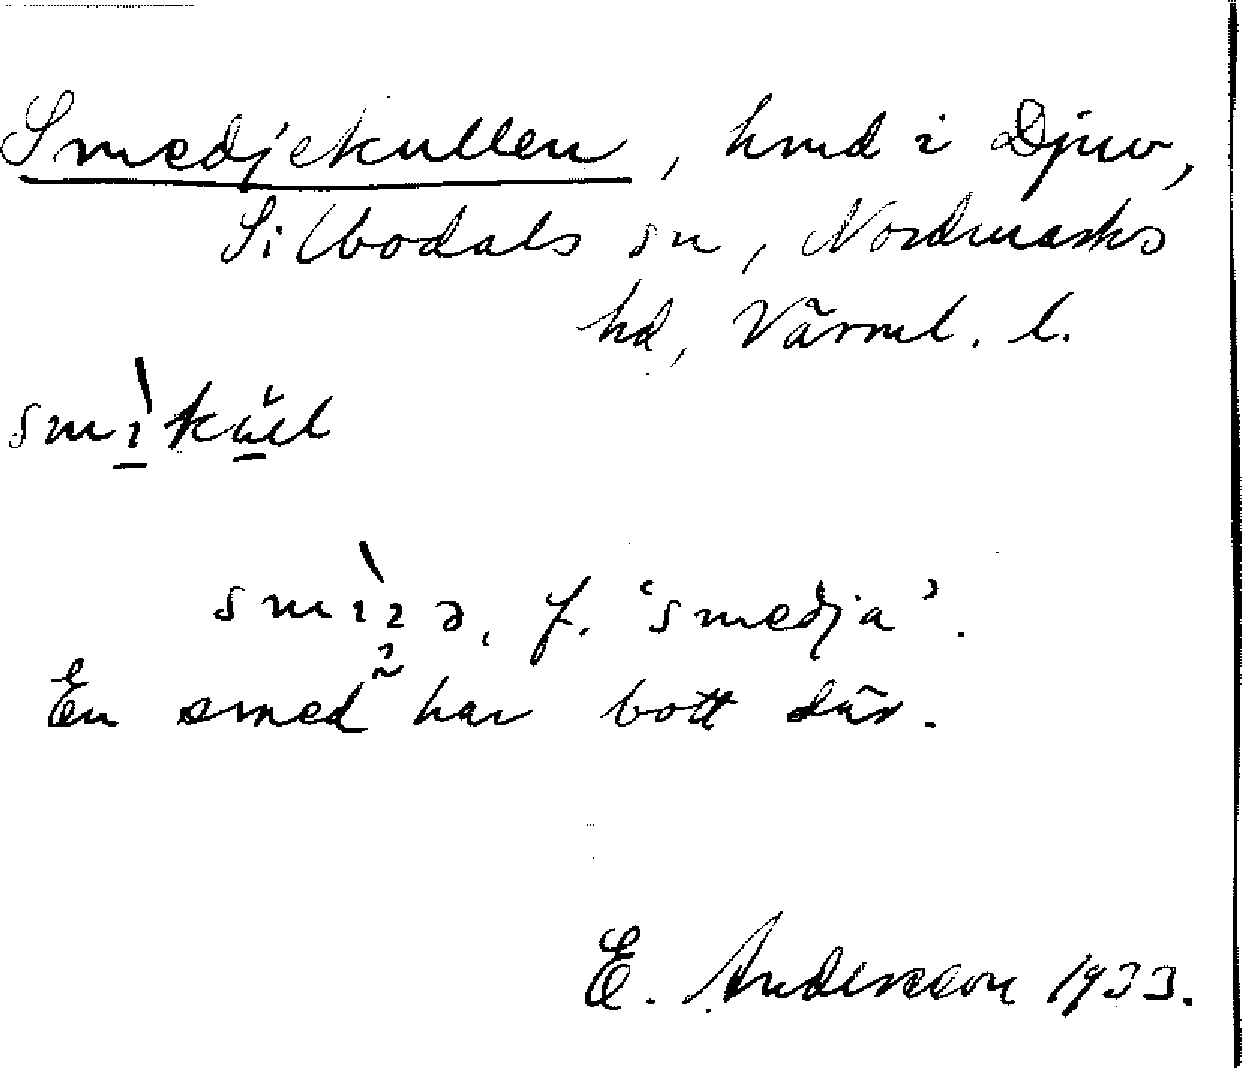 Smedjekullen, hmd i Djuv,
Silbodals sn, Nordmarks
hd, Värml. l.
smìkŭll
smìzə, f. 'smedja'.
En smed har bott där.
E. Andersson 1933.